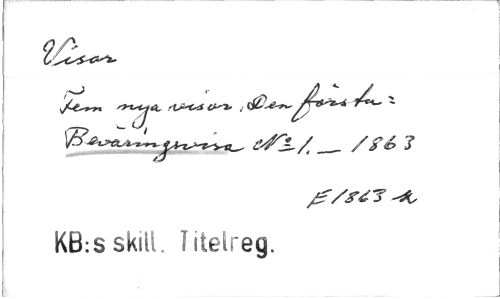 Visor
Fem nya visor. Den första:
Beväringsvisa No 1. — 1863
E 1863
KB:s skill. Titelreg.